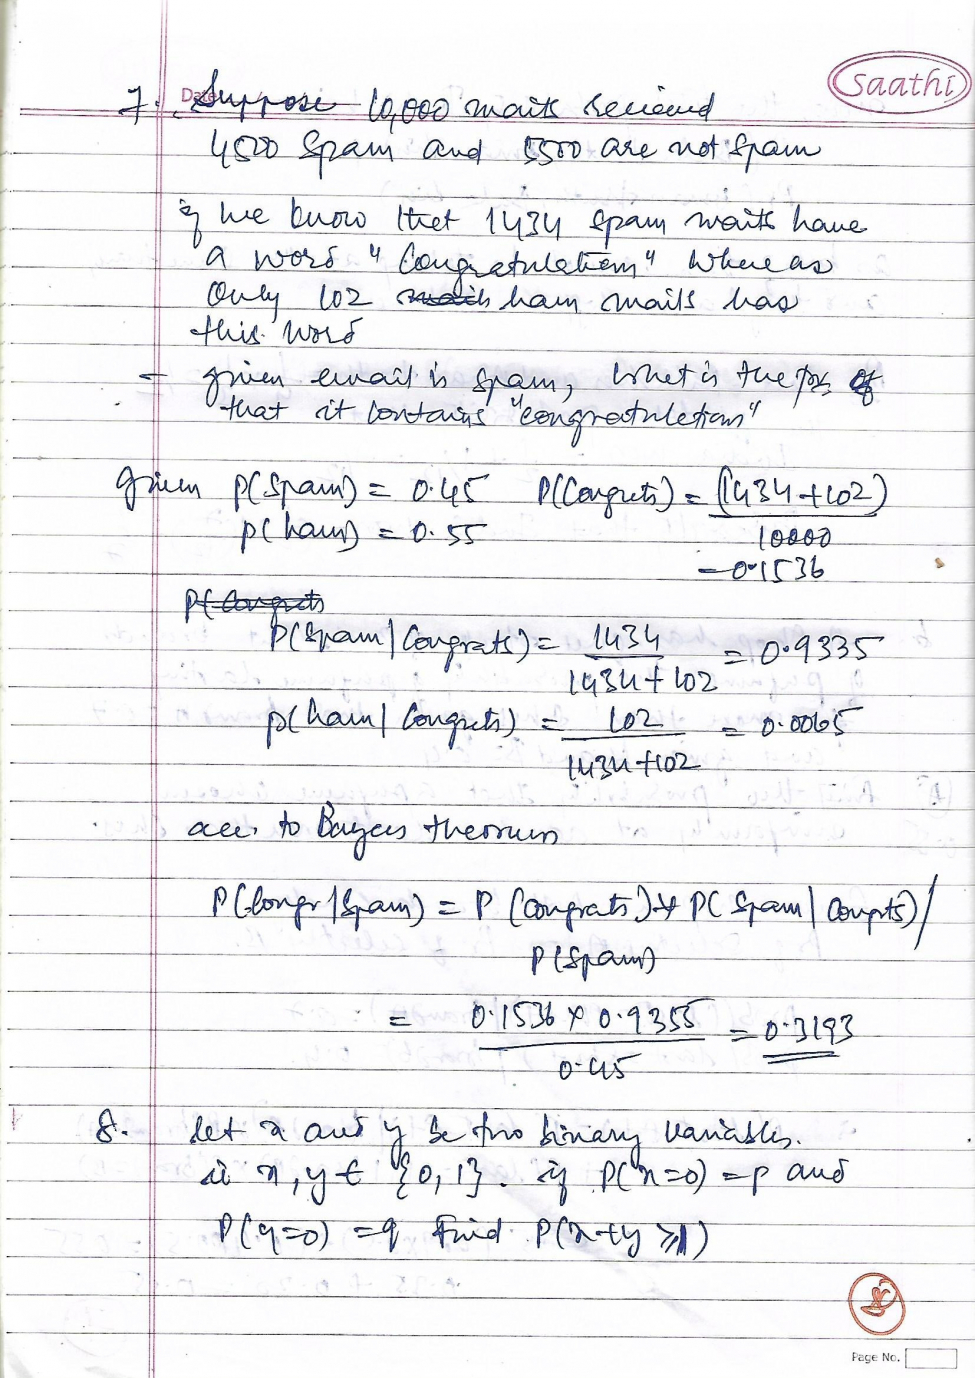 Saathi
Date
7. Suppose 10,000 mails recieved
4500 Spam and 5500 are not Spam
if we know that 1434 spam mails have
a word "Congratulations" where as
Only 102 mails ham mails has
this word
- given email is spam, what is the prob of
that it contains "congratulations"
given P(Spam) = 0.45 P(Congrats) = (1434+102)
p(ham) = 0.55 10000
= 0.1536
P(Congrats
P(Spam|Congrats) = 1434 = 0.9335
1434+102
p(ham|Congrats) = 102 = 0.0065
1434+102
acc. to Bayes theorem
P(Congr|Spam) = P(Congrats) * P(Spam|Congrats)/
P(Spam)
= 0.1536 × 0.9355 = 0.3193
0.45
8. let x and y be two binary variables.
ie x, y ∈ {0,1}. if P(x=0) = p and
P(y=0) = q find P(x+y ≥ 1)
Page No.